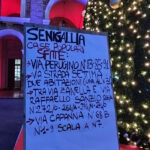 SENIGALLIA
CASE POPOLARI
SFITE:
→VIA PERUGINO N
→VIA STRADA SETTIMA
DUE ABITAZIONI
→TRA VIA ZANELLA E VIA
RAFFAELLO SANZIO
N
→VIA CAPANNA N 88 B
SCALA A N 7